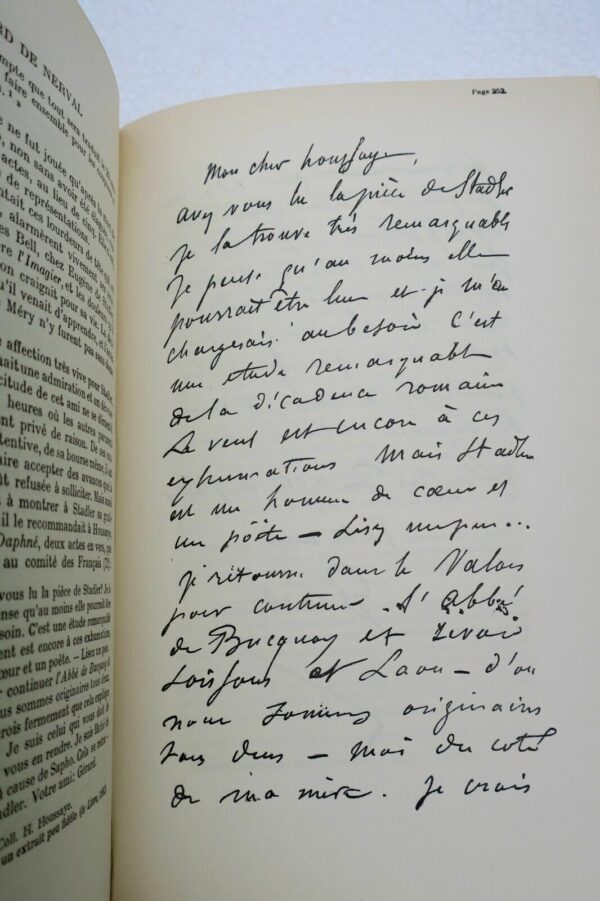 RD DE NERVAL
mpte que tout sera
faire ensemble pour les
ne fut jouée qu'après
, non sans avoir été
actes, au lieu de cinq.
de représentations.
ntait ces lourdeurs de tête
alarmèrent vivement ses
es Bell, chez Eugène de
re l'Imagier, et les
on craignit pour sa vie. La
u'il venait d'apprendre, et
Méry n'y furent pas sans
affection très vive pour Stadler
nait une admiration et un
citude de cet ami ne se
heures où les autres
ent privé de raison. De ses
tentive, de sa bourse même, il
aire accepter des avances que
ût refusée à solliciter. Mais
s à montrer à Stadler sa
il le recommandait à Houssaye,
Daphné, deux actes en vers, que
au comité des Français (72)
vous lu la pièce de Stadler? Je la
nse qu'au moins elle pourrait être
soin. C'est une étude remarquable
ent est encore à ces exhumations,
cœur et un poète. — Lisez un peu
continuer l'Abbé de Bucquoy et
us sommes originaires tous deux,
rois fermement que cela explique
Je suis celui qui vous
vous en rendre. Je suis
à cause de Sapho. Cela se
adler. Votre ami: Gérard.
Coll. H. Houssaye.
un extrait peu fidèle (le Livre, 1883
Page 252.
Mon cher houssaye,
avez vous lu la pièce de Stadler
je la trouve très remarquable
Je pense qu'au moins elle
pourrait être lue et je m'en
chargerais au besoin C'est
une étude remarquable
de la décadence romaine
Le vent est encore à ces
exhumations Mais Stadler
est un homme de cœur et
un pöête — Lisez un peu...
je retourne dans le Valois
pour continuer L'Abbé
de Bucquoy et revoir
Soissons et Laon — d'où
nous sommes originaires
tous deux — moi du coté
de ma mère. Je crois